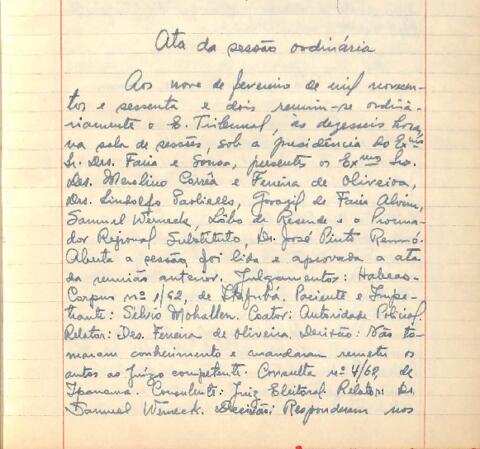 Ata da sessão ordinária
Aos nove de fevereiro de mil novecen-
tos e sessenta e dois reuniu-se ordinà-
riamente o E. Tribunal, às dezesseis horas,
na sala de sessões, sob a presidência do Exmo
Sr. Des. Faria e Sousa, presentes os Exmos Srs.
Des. Merolino Corrêa e Ferreira de Oliveira,
Drs. Lindolfo Paoliello, de Faria Alvim,
Samuel Werneck, Lôbo de Resende e o Procura-
dor Regional Substituto, Dr. José Pinto Rennó.
Aberta a sessão, foi lida e aprovada a ata
da reunião anterior. Julgamentos: Habeas-
Corpus nº 1/62, de Itajubá. Paciente e Impe-
trante: Sílvio Mohallem. Coator: Autoridade Policial.
Relator: Des. Ferreira de Oliveira. Decisão: Não to-
maram conhecimento e mandaram remeter os
autos ao Juízo competente. Consulta nº 4/62, de
Ipanema. Consulente: Juiz Eleitoral. Relator: Dr.
Samuel Werneck. Decisão: Responderam nos